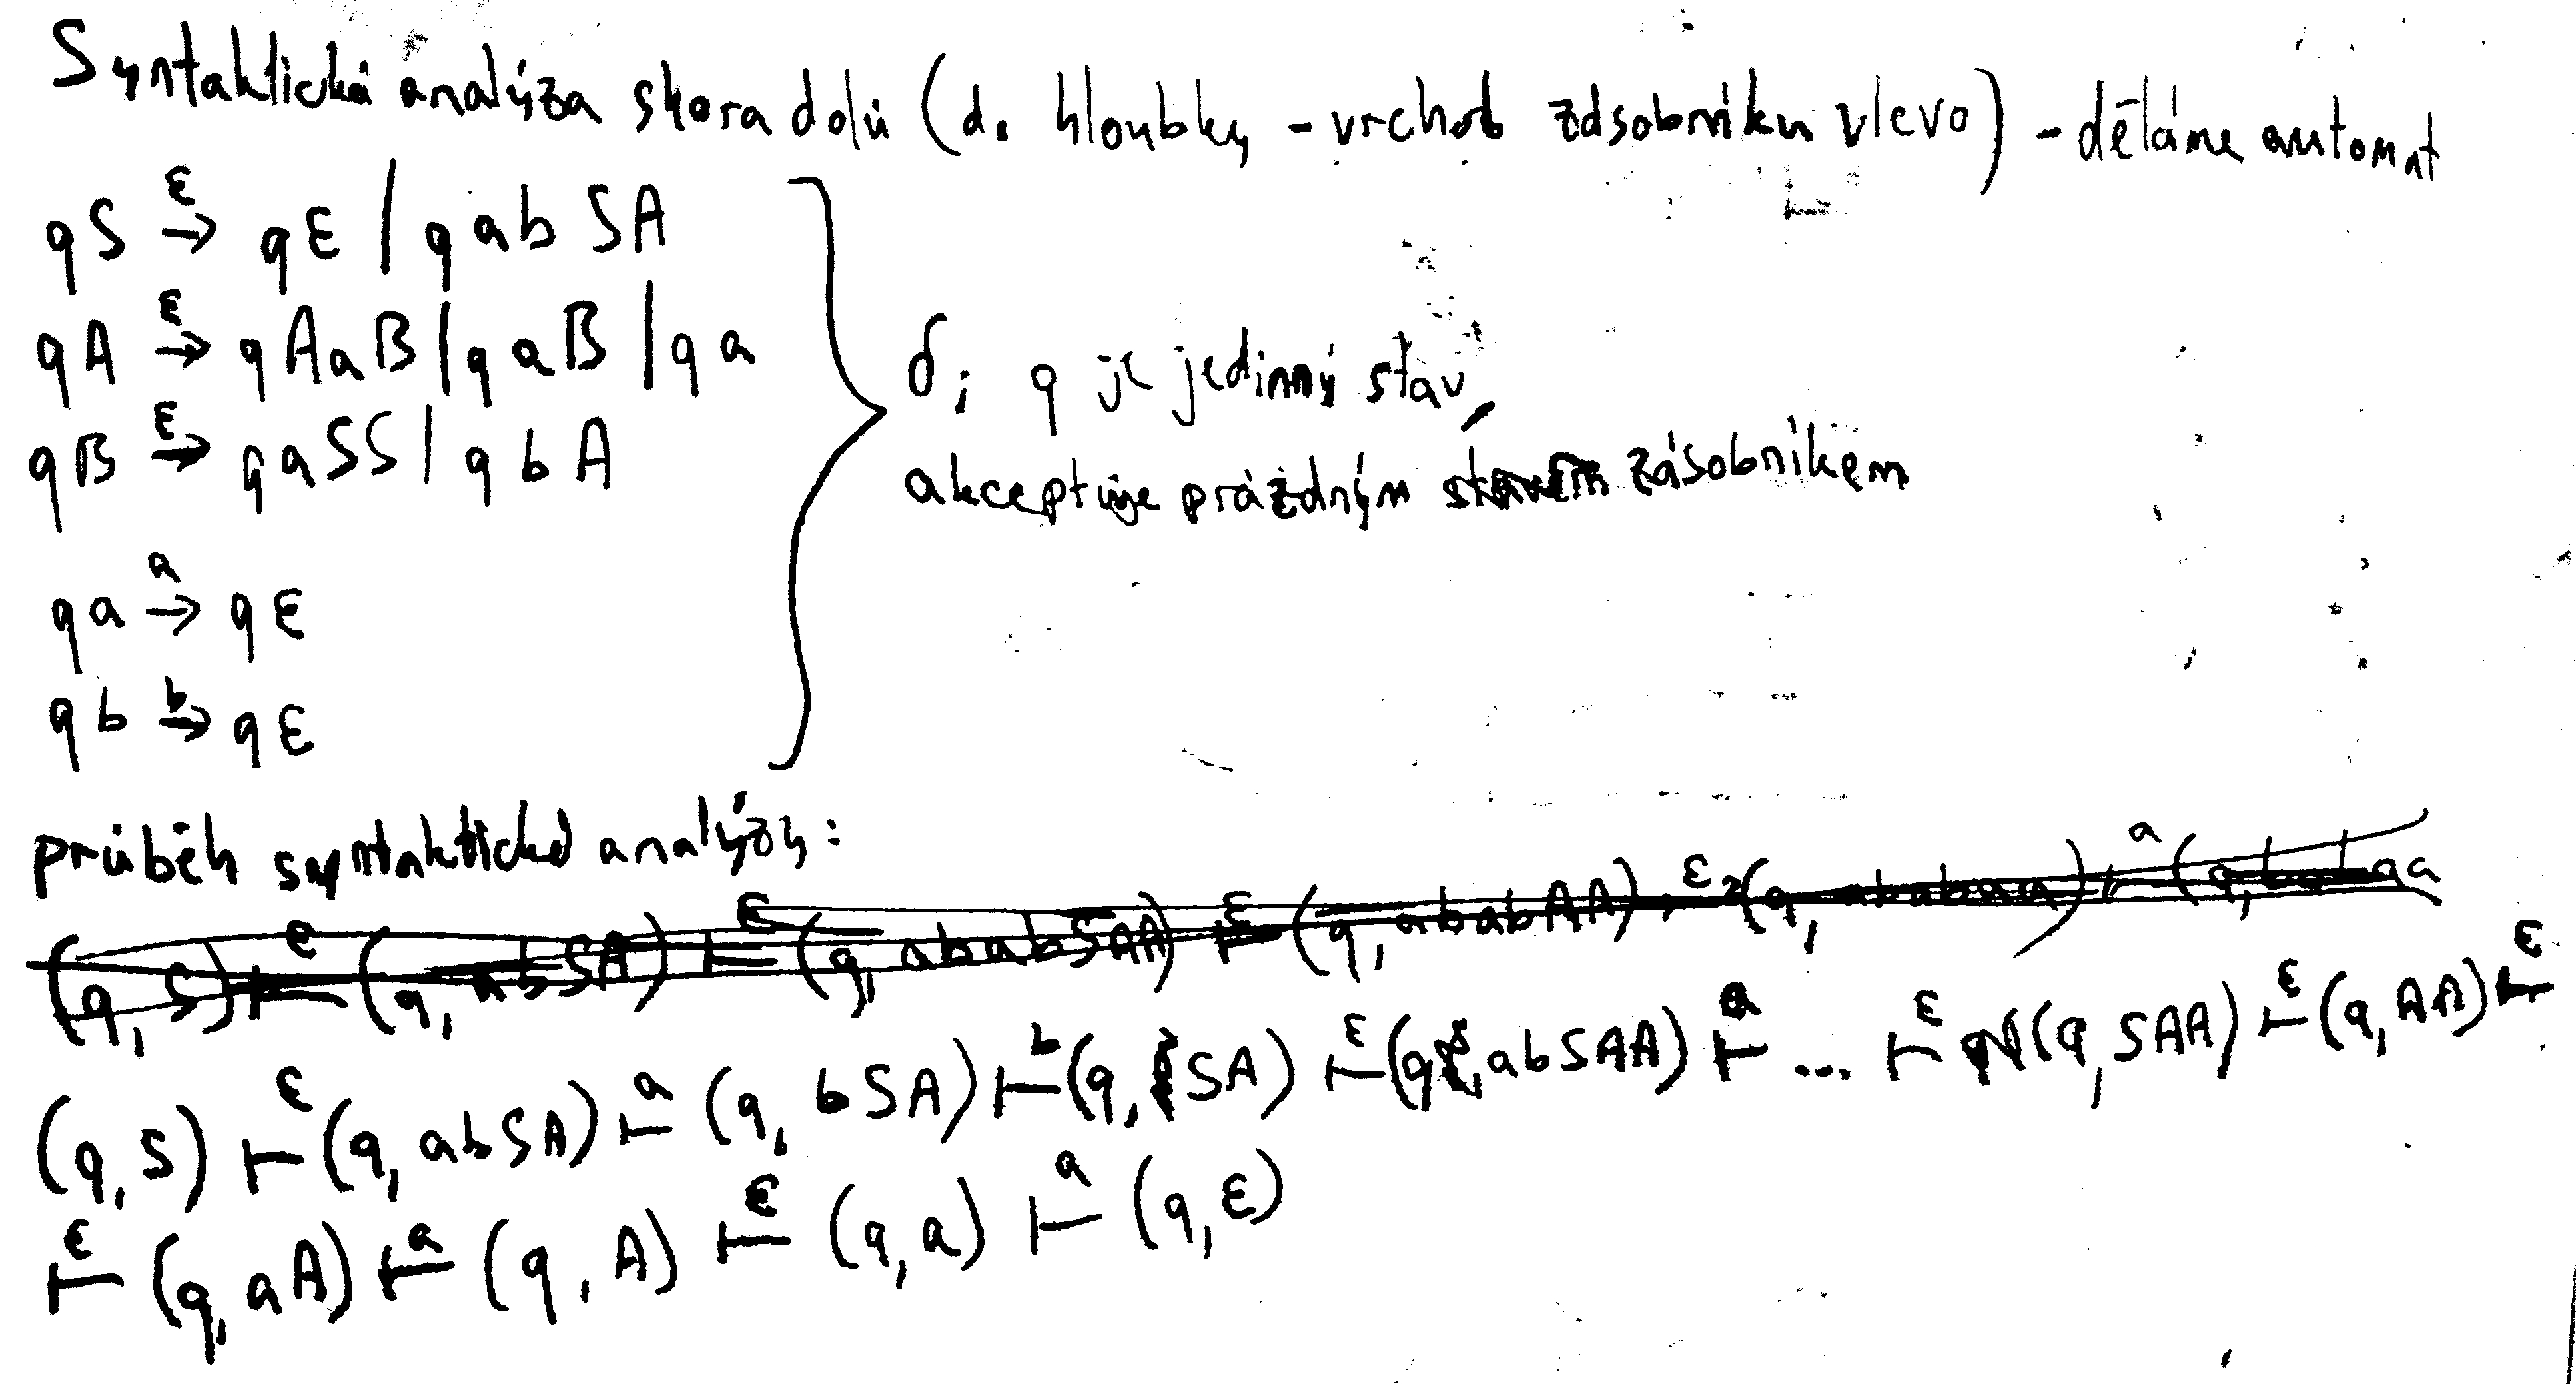 Syntaktická analýza shora dolů (do hloubky - vrchol zásobníku vlevo) - děláme automat
qS →^ε qε | qabSA
qA →^ε qAaB | qaB | qa
qB →^ε qaSS | qbA
δ; q je jedinný stav,
akceptuje prázdným zásobníkem
qa →^a qε
qb →^b qε
průběh syntaktické analýzy:
(q, S) ⊢^ε (q, abSA) ⊢^ε (q, ababSAA) ⊢^ε (q, ababAA) (q, ababaa) ⊢^a (q, babaa
(q, S) ⊢^ε (q, abSA) ⊢^a (q, bSA) ⊢^b (q, SA) ⊢^ε (q, abSAA) ⊢^a ... ⊢^ε (q, SAA) ⊢^ε (q, AA) ⊢^ε
⊢^ε (q, aA) ⊢^a (q, A) ⊢^ε (q, a) ⊢^a (q, ε)